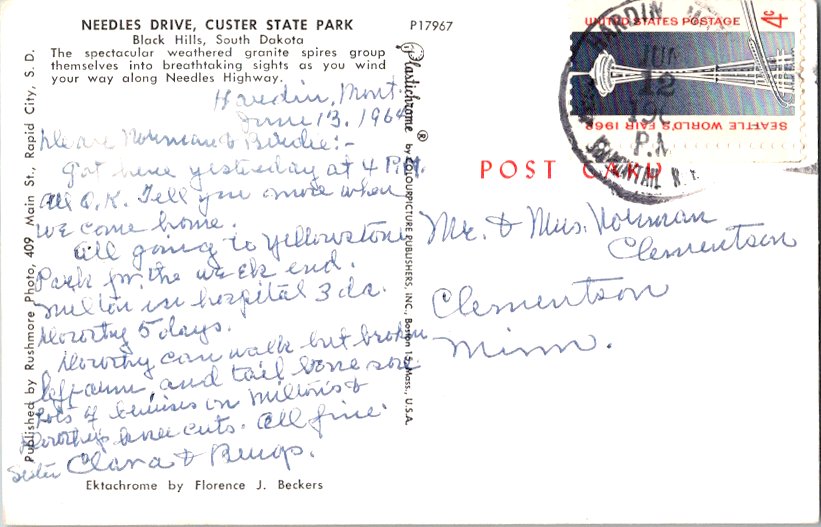 NEEDLES DRIVE, CUSTER STATE PARK
Black Hills, South Dakota
The spectacular weathered granite spires group
themselves into breathtaking sights as you wind
your way along Needles Highway.
P17967
Hardin, Mont.
June 13, 1964
Dear Norman & Birdie:-
Got here yesterday at 4 P.M.
All O.K. Tell you more when
we come home.
All going to Yellowstone
Park for the week end.
Milton in hospital 3 da.
Dorothy 5 days.
Dorothy can walk but broken
left arm, and tail bone sore
Lots of bruises on Milton's &
Dorothy's knee cuts. All fine.
Sister Clara &
Ektachrome by Florence J. Beckers
Published by Rushmore Photo, 409 Main St., Rapid City, S. D.
Plastichrome ® by COLOURPICTURE PUBLISHERS, INC., Boston 15, Mass., U.S.A.
UNITED STATES POSTAGE
4¢
SEATTLE WORLD'S FAIR 1962
HARDIN
JUN
12
P.M
POST CARD
Mr. & Mrs. Norman
Clementson
Clementson
Minn.